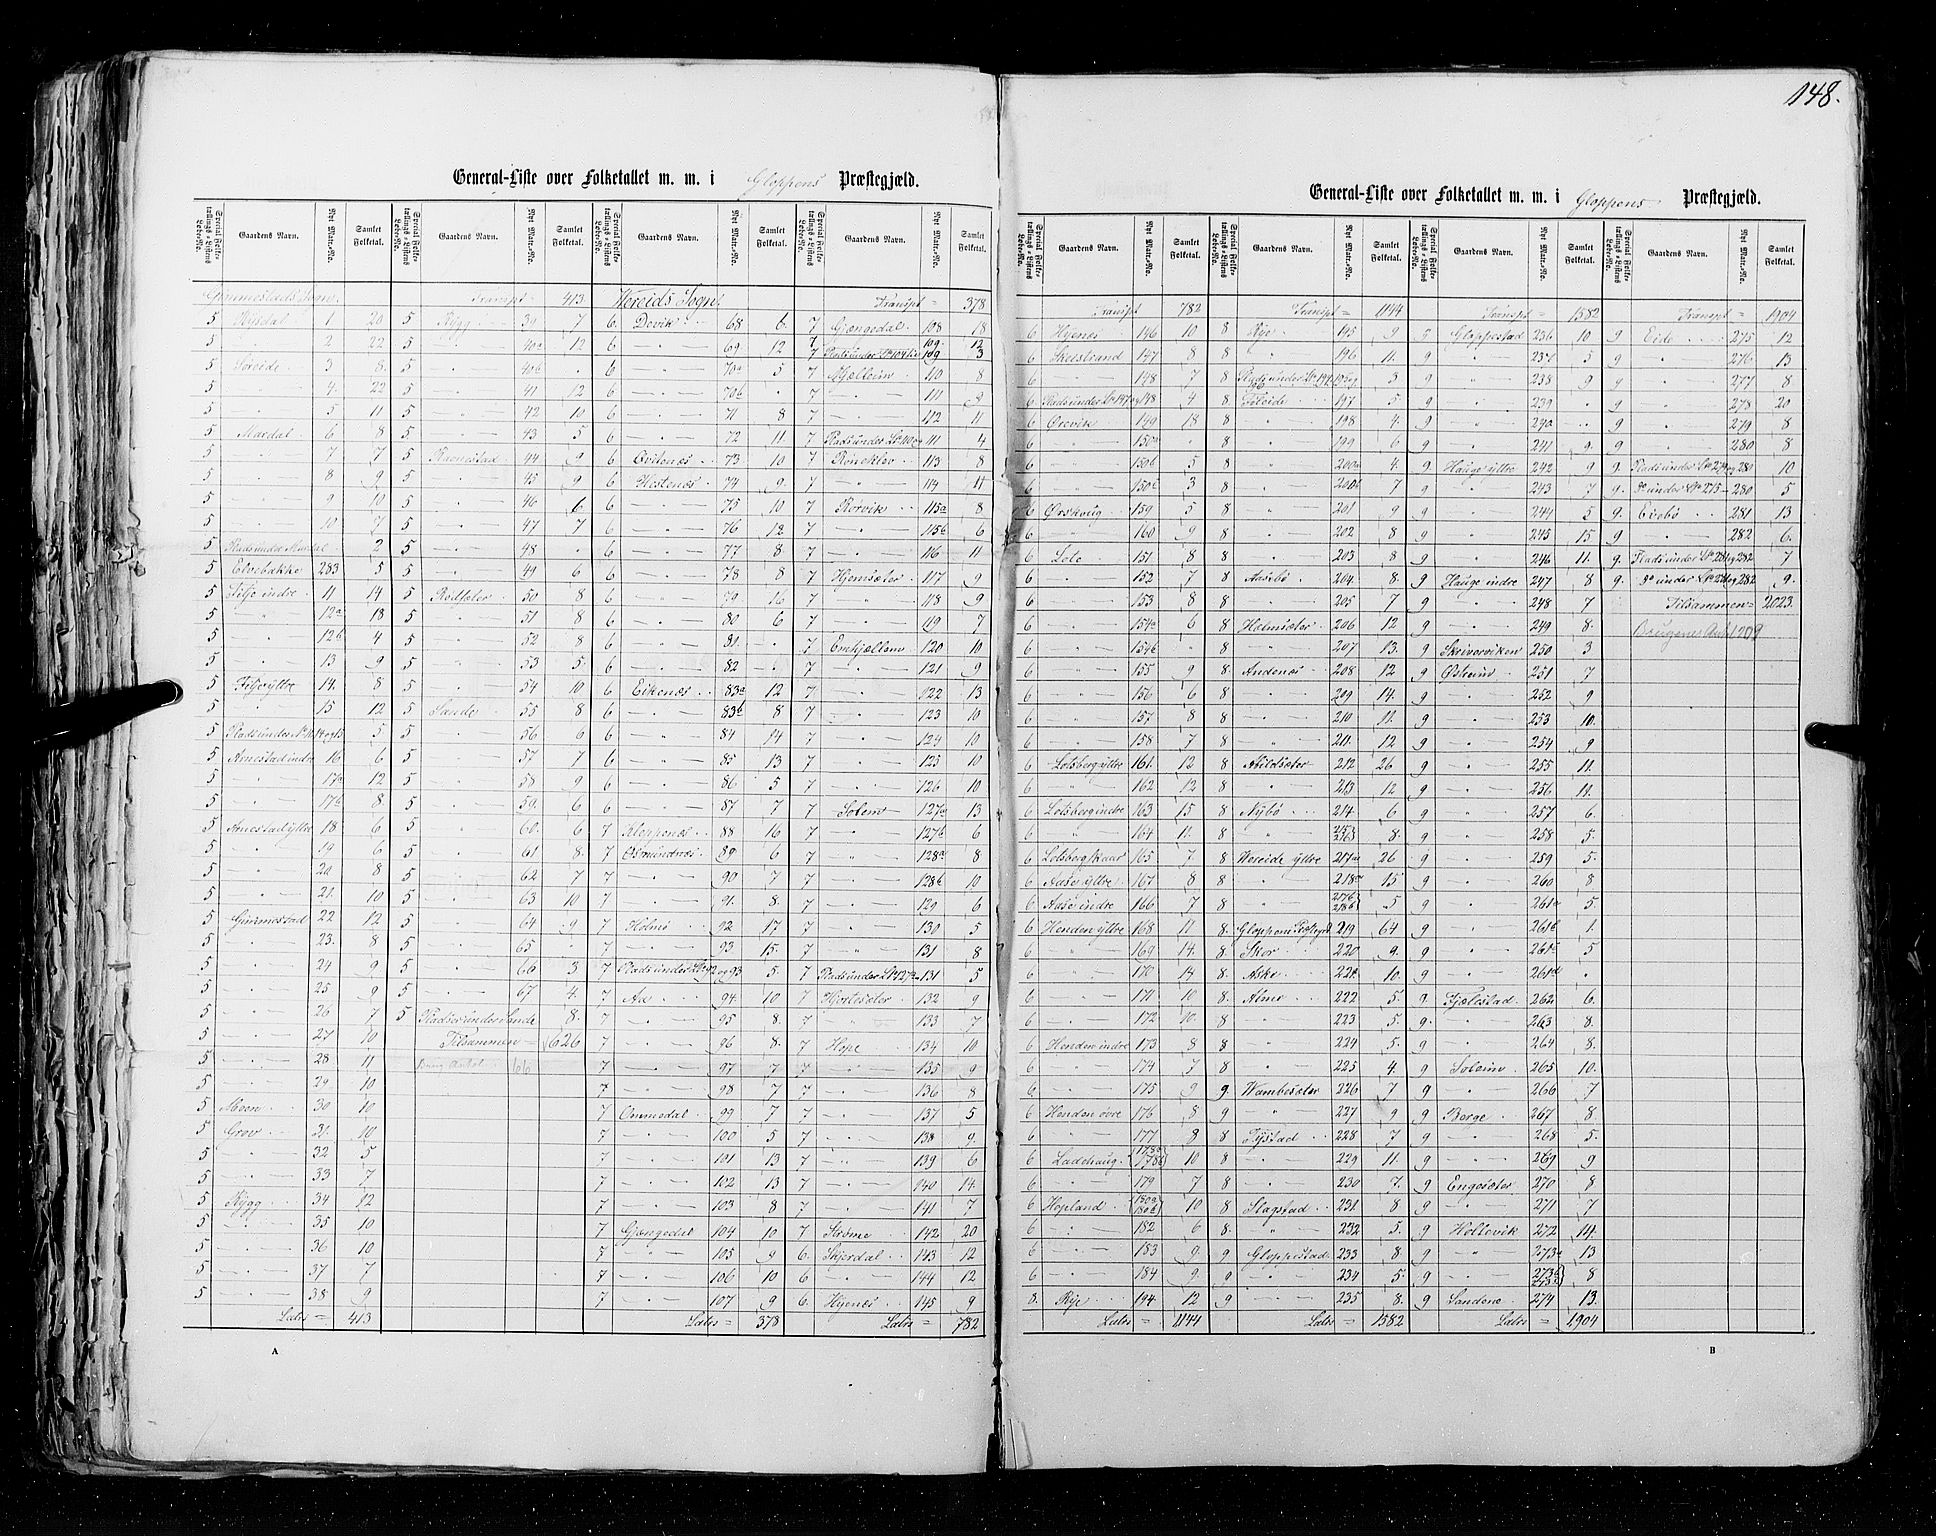 148.
General-Liste over Folketallet m. m. i Gloppens Præstegjæld.
Special Folketællings-Listens Løbe-No. Gaardens Navn. Nyt Matr.-No. Samlet Folketal. Special Folketællings-Listens Løbe-No. Gaardens Navn. Nyt Matr.-No. Samlet Folketal. Special Folketællings-Listens Løbe-No. Gaardens Navn. Nyt Matr.-No. Samlet Folketal. Special Folketællings-Listens Løbe-No. Gaardens Navn. Nyt Matr.-No. Samlet Folketal.
Gimmestads Sogn.
5 1 20
5 " — 2 22
5 Søreide 3 8
5 " — 4 22
5 " — 5 11
5 Mardal 6 8
5 " — 7 7
5 " — 8 9
5 " — 9 10
5 " — 10 7
5 Plads under Mardal 2
5 Elvebakke 283 5
5 indre 11 14
5 " — 12a 18
5 " — 12b 4
5 " — 13 9
5 yttre 14 8
5 " — 15 12
5 Plads under 14 og 15 5
5 Arnestad indre 16 6
5 " — 17a 12
5 " — 17b 8
5 Arnestad yttre 18 6
5 " — 19 6
5 " — 20 8
5 " — 21 10
5 Gimmestad 22 12
5 " — 23 8
5 " — 24 9
5 " — 25 9
5 " — 26 7
5 " — 27 10
5 " — 28 11
5 " — 29 10
5 Moen 30 10
5 Grov 31 10
5 " — 32 5
5 " — 33 7
5 Rygg 34 12
5 " — 35 10
5 " — 36 10
5 " — 37 7
5 " — 38 9
Latus = 413
Transpt = 413
5 Rygg 39 7
5 " — 40a 12
5 " — 40b "
5 " — 41 12
5 " — 42 10
5 " — 43 5
5 Ravnestad 44 9
5 " — 45 9
5 " — 46 6
5 " — 47 7
5 " — 48 "
5 " — 49 6
5 50 8
5 " — 51 8
5 " — 52 8
5 " — 53 5
5 " — 54 10
5 Sande 55 8
5 " — 56 6
5 " — 57 7
5 " — 58 9
5 " — 59 6
5 " — 60 6
5 " — 61 8
5 " — 62 7
5 " — 63 10
5 " — 64 9
5 " — 65 "
5 " — 66 3
5 " — 67 4
5 Pladser under Sande 8
Tilsammen = 626
Brug Antal 66
Vereids Sogn.
6 Devik 68 6
6 " — 69 12
6 " — 70a 5
6 " — 70b "
6 " — 71 8
6 " — 72 11
6 Qvitenes 73 10
6 Hestenes 74 9
6 " — 75 10
6 " — 76 12
6 " — 77 8
6 " — 78 8
6 " — 79 16
6 " — 80 6
6 " — 81 "
6 " — 82 "
6 Eikenæs 83a 12
6 " — 83b 8
6 " — 84 14
6 " — 85 13
6 " — 86 5
6 " — 87 7
7 Kleppenes 88 16
7 Osmundnæs 89 6
7 " — 90 7
7 " — 91 8
7 Holmø 92 17
7 " — 93 15
7 Plads under No 92 og 93 5
7 Aa 94 10
7 " — 95 8
7 " — 96 8
7 " — 97 7
7 " — 98 7
7 Ommedal 99 7
7 " — 100 5
7 " — 101 13
7 " — 102 13
7 " — 103 8
7 Gjengedal 104 10
7 " — 105 9
7 " — 106 10
7 " — 107 9
Latus = 378
Transpt = 378
7 Gjengedal 108 18
7 " — 109 12
7 Plads under No 104 109 3
7 Mjelleim 110 8
7 " — 111 9
7 " — 112 11
7 Plads under No 110 og 111 4
7 Røneklev 113 8
7 " — 114 11
7 Rørvik 115a 8
7 " — 115b 6
7 " — 116 11
7 Hjemsæter 117 9
7 " — 118 9
7 " — 119 7
7 Emhjellem 120 10
7 " — 121 9
7 " — 122 13
7 " — 123 10
7 " — 124 10
7 " — 125 10
7 " — 126 10
7 Solem 127a 13
7 " — 127b 6
7 " — 128a 8
7 " — 128b 10
7 " — 129 6
7 " — 130 5
7 " — 131 8
7 Plads under No 127a — 131 5
7 Hjortesæter 132 9
7 " — 133 7
7 Hope 134 10
7 " — 135 9
7 " — 136 8
7 " — 137 5
7 " — 138 9
7 " — 139 6
7 " — 140 14
7 " — 141 7
7 Strøme 142 20
6 Skjerdal 143 12
6 " — 144 12
6 Hyenæs 145 9
Latus = 782
A
General-Liste over Folketallet m. m. i Gloppens Præstegjæld.
Special Folketællings-Listens Løbe-No. Gaardens Navn. Nyt Matr.-No. Samlet Folketal. Special Folketællings-Listens Løbe-No. Gaardens Navn. Nyt Matr.-No. Samlet Folketal. Special Folketællings-Listens Løbe-No. Gaardens Navn. Nyt Matr.-No. Samlet Folketal. Special Folketællings-Listens Løbe-No. Gaardens Navn. Nyt Matr.-No. Samlet Folketal.
Transpt 782
6 Hyenes 146 10
6 Skeistrand 147 8
6 " — 148 7
6 Plads under No 147 og 148 4
6 Ørevik 149 18
6 " — 150a "
6 " — 150b 5
6 " — 150c 3
6 Ørshaug 159 5
6 " — 160 9
6 Lote 151 8
6 " — 152 7
6 " — 153 8
6 " — 154a 6
6 " — 154b "
6 " — 155 9
6 " — 156 6
6 " — 157 8
6 " — 158 7
6 Lotsberg yttre 161 12
6 " — 162 12
6 Lotsberg indre 163 15
6 " — 164 11
6 Lotsberg 165 7
6 Aase yttre 167 8
6 Aase indre 166 7
6 Henden yttre 168 11
6 " — 169 14
6 " — 170 14
6 " — 171 10
6 " — 172 10
6 Henden indre 173 8
6 " — 174 7
6 " — 175 9
6 Henden øvre 176 8
6 " — 177 8
6 Ladehaug 178a 178b 10
6 " — 179 7
6 Hopland 180a 180b 10
6 " 182 6
6 " — 183 9
6 " — 184 9
8 Rye 194 12
Latus = 1144
Transpt = 1144
8 Rye 195 9
8 " — 196 11
8 Plads under No 194, 195 og 196 3
8 197 5
8 " — 198 4
8 " — 199 6
8 " — 200a 4
8 " — 200b 7
8 " — 201 9
8 " — 202 8
8 " — 203 8
8 Aasebø 204 8
8 " — 205 7
8 Holmsæter 206 12
8 " — 207 13
8 Andenes 208 12
8 " — 209 14
8 " — 210 11
8 " — 211 12
8 212 26
8 " — 213 12
8 Nybø 214 6
8 " — 215 216 8
8 Vereide yttre 217a 26
8 " — 218a 15
8 " — 217b 218b 5
8 Gloppens Præstegd 219 64
8 Skor 220 9
8 Aske 221 10
8 Alme 222 5
8 " — 223 5
8 " — 224 5
8 " — 225 4
9 Vambesæter 226 7
9 " — 227 9
8 Tystad 228 7
8 " — 229 11
8 " — 230 7
8 Stagstad 231 8
8 " — 232 5
9 Gloppestad 233 8
9 " — 234 5
9 " — 235 8
Latus = 1582
Transpt = 1582
9 Gloppestad 236 10
9 " — 237 5
9 " — 238 9
9 " — 239 "
9 " — 240 "
9 " — 241 9
9 Hauge yttre 242 9
9 " — 243 7
9 " — 244 5
9 " — 245 15
9 " — 246 11
9 Hauge indre 247 8
9 " — 248 7
9 " — 249 8
9 Skriverviken 250 3
9 Østrein 251 7
9 " — 252 9
9 " — 253 10
9 " — 254 9
9 " — 255 11
9 " — 256 11
9 " — 257 6
9 " — 258 5
9 " — 259 5
9 " — 260 8
9 " — 261a 5
9 " — 261b 1
9 " — 261c 5
9 " — 261d "
9 Fjelestad 262 6
9 " — 263 8
9 " — 264 8
9 Soleim 265 10
9 " — 266 7
9 Berge 267 8
9 " — 268 5
9 " — 269 9
9 Engesæter 270 8
9 " — 271 7
9 Holtevik 272 14
9 " — 273a 13
9 " — 273b 273c 8
9 Sandene 274 13
Latus = 1904
Transpt = 1904
9 Eide 275 12
9 " — 276 13
9 " — 277 8
9 " — 278 20
9 " — 279 8
9 " — 280 8
9 Plads under No 279 og 280 10
9 do under No 275 — 280 5
9 Evebø 281 13
9 " — 282 6
9 Plads under No 281 og 282 7
9 do under No 281 og 282 9
Tilsammen = 2023
Brugenes Antal 209
B